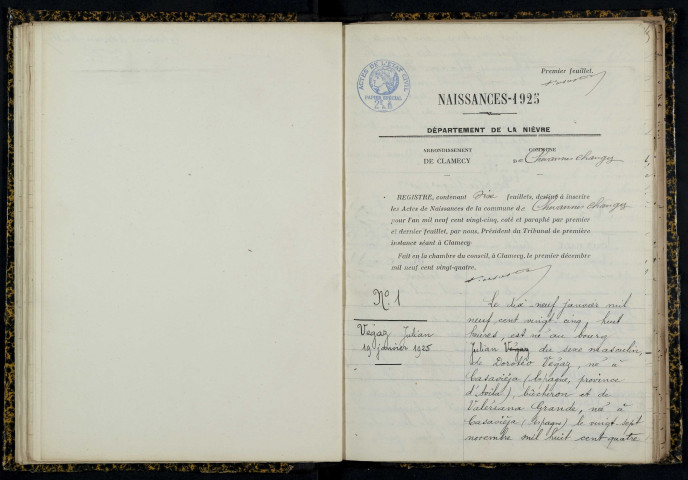 Premier feuillet.
ACTES DE L'ETAT CIVIL
PAPIER SPECIAL
NAISSANCES-1925
DÉPARTEMENT DE LA NIÈVRE
ARRONDISSEMENT
DE CLAMECY
COMMUNE
de Chevannes Changy
REGISTRE, contenant dix feuillets, destiné à inscrire
les Actes de Naissances de la commune de Chevannes Changy
pour l'an mil neuf cent vingt-cinq, coté et paraphé par premier
et dernier feuillet, par nous, Président du Tribunal de première
instance séant à Clamecy.
Fait en la chambre du conseil, à Clamecy, le premier décembre
mil neuf cent vingt-quatre.
No. 1
Végaz Julian
19 janvier 1925
Le dix neuf janvier mil
neuf cent vingt cinq, huit
heures, est né au bourg
Julian Végaz du sexe masculin,
de Dorotéo Végaz, né à
Casaviéja (Espagne, province
d'Avila), bûcheron et de
Valériana Grande, née à
Casaviéja (Espagne) le vingt-sept
novembre mil huit cent quatre